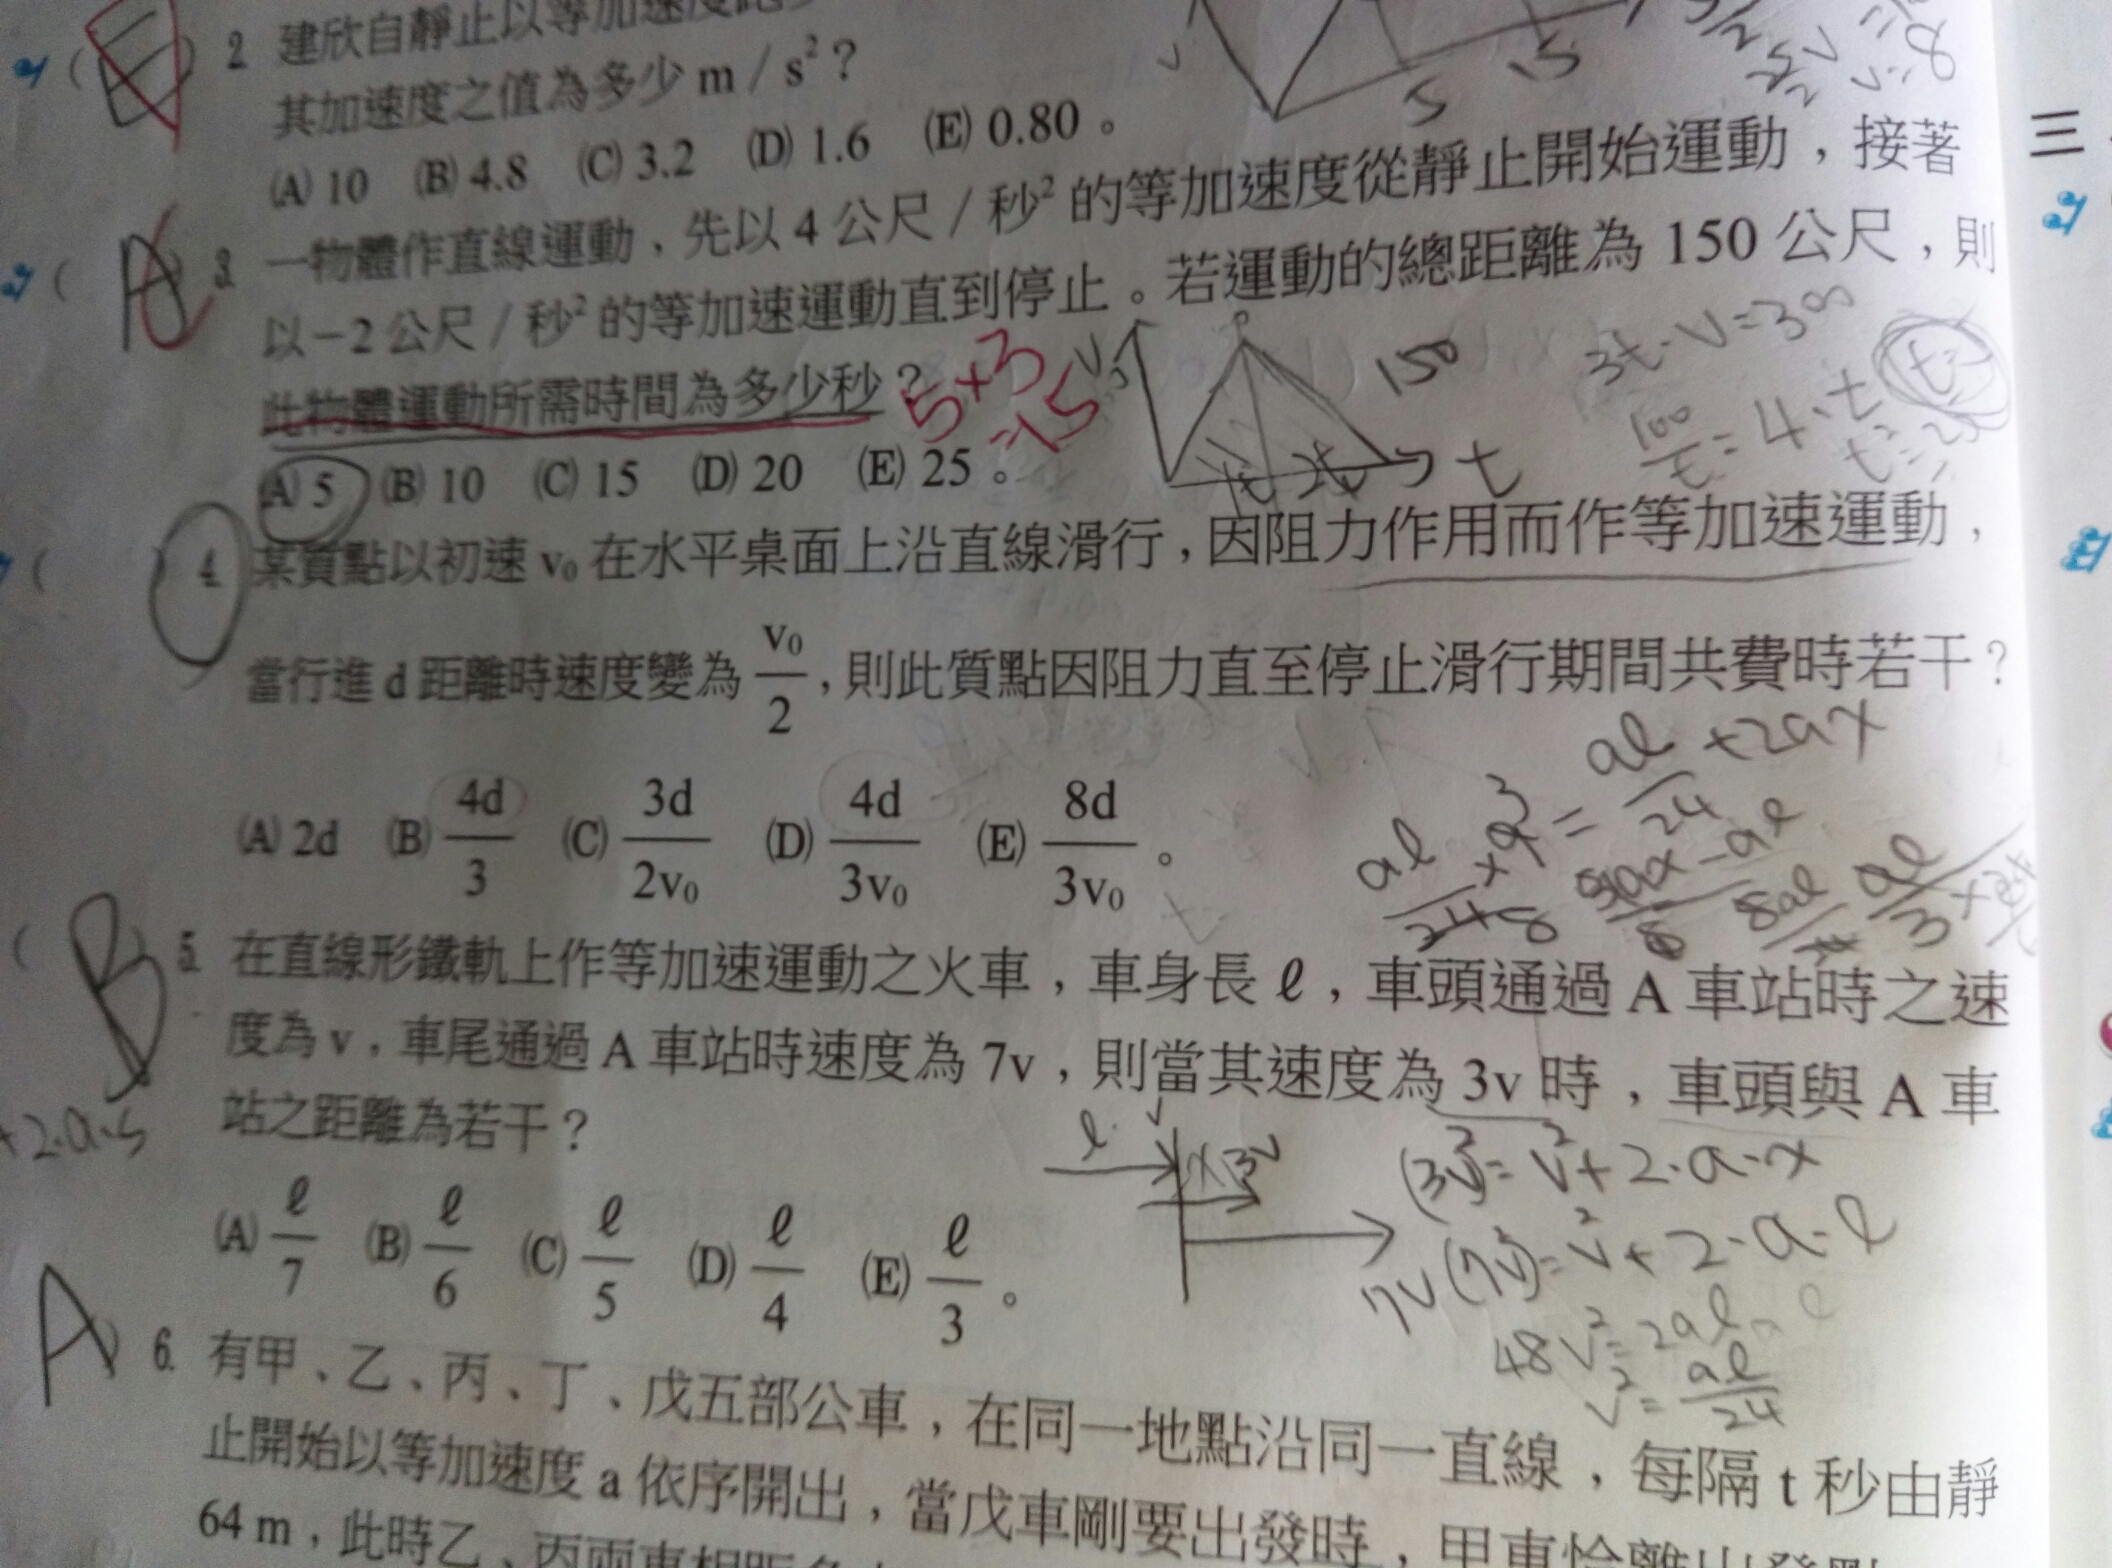 2. 建欣自靜止以等加速度跑
其加速度之值為多少 m / s² ?
(A) 10 (B) 4.8 (C) 3.2 (D) 1.6 (E) 0.80 。
A
3. 一物體作直線運動，先以 4 公尺 / 秒² 的等加速度從靜止開始運動，接著
以－2 公尺 / 秒² 的等加速運動直到停止。若運動的總距離為 150 公尺，則
此物體運動所需時間為多少秒？
5×3
=15
150
(A) 5 (B) 10 (C) 15 (D) 20 (E) 25 。
t
4. 某質點以初速 v₀ 在水平桌面上沿直線滑行，因阻力作用而作等加速運動，
當行進 d 距離時速度變為 v₀/2，則此質點因阻力直至停止滑行期間共費時若干？
(A) 2d (B) 4d/3 (C) 3d/2v₀ (D) 4d/3v₀ (E) 8d/3v₀ 。
B
5. 在直線形鐵軌上作等加速運動之火車，車身長 ℓ，車頭通過 A 車站時之速
度為 v，車尾通過 A 車站時速度為 7v，則當其速度為 3v 時，車頭與 A 車
站之距離為若干？
+2·a·s
(3v)²=v²+2·a·x
(7v)²=v²+2·a·ℓ
7v
48v²=2aℓ
v²=aℓ/24
(A) ℓ/7 (B) ℓ/6 (C) ℓ/5 (D) ℓ/4 (E) ℓ/3 。
A
6. 有甲、乙、丙、丁、戊五部公車，在同一地點沿同一直線，每隔 t 秒由靜
止開始以等加速度 a 依序開出，當戊車剛要出發時，甲車恰離出發點
64 m，此時乙、丙兩車相距多
三